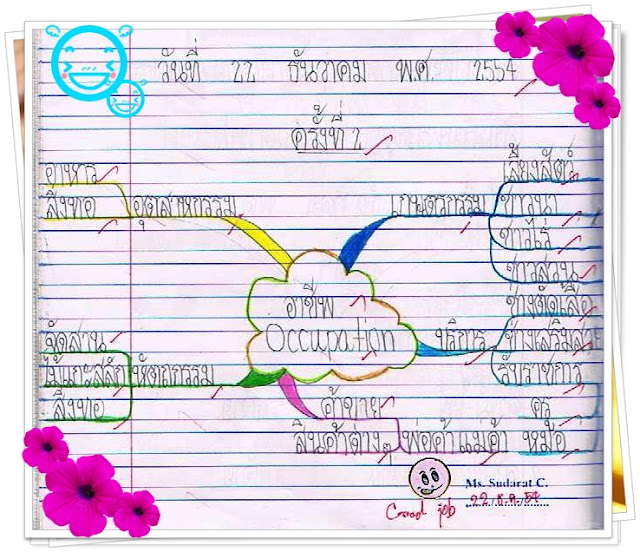 วันที่ 22 ธันวาคม พศ. 2554
ครั้งที่ 2
อาหาร
สิ่งทอ
อุตสาหกรรม
เกษตรกรรม
เลี้ยงสัตว์
ชาวนา
ชาวไร่
ชาวสวน
อาชีพ
Occupation
บริการ
ช่างตัดเสื้อ
ช่างเสริมสวย
รับราชการ
ครู
หมอ
จักสาน
ไม้แกะสลัก
สิ่งทอ
หัตถกรรม
ค้าขาย
สินค้าต่างๆ
พ่อค้า แม่ค้า
Good job
Ms. Sudarat C.
22 ธ.ค. 54